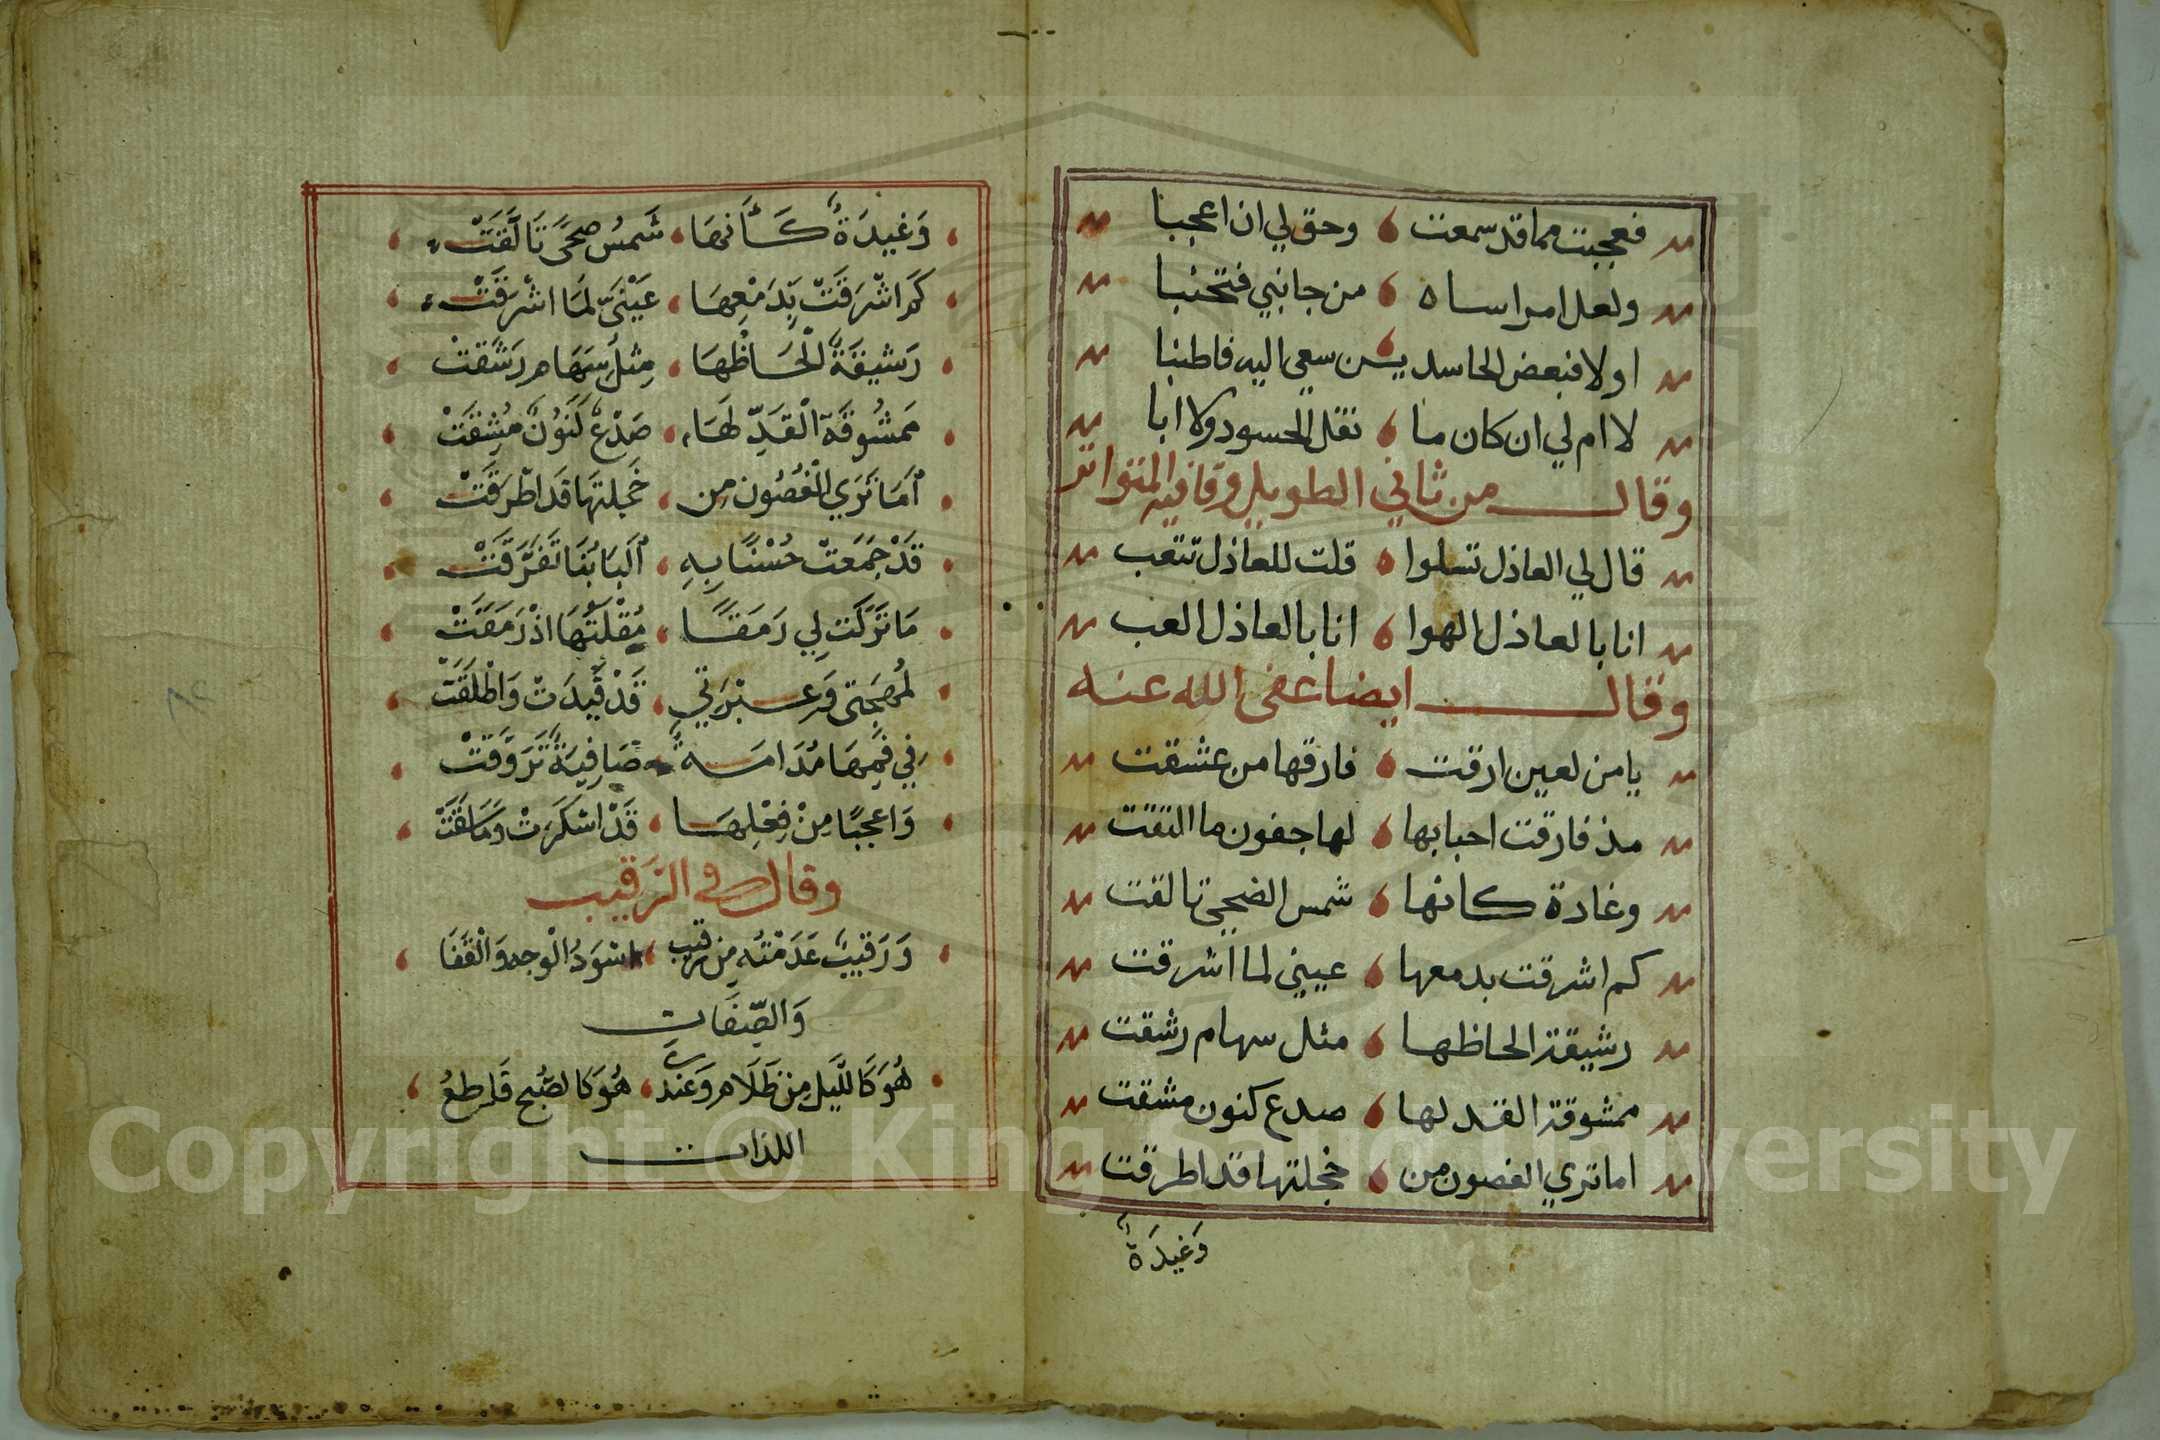 فعجبت مما قد سمعت وحق لي ان اعجبا
ولعل امرا ساه من جانبي فتجنبا
اولا فبعض الحاسدين سعي اليه فاطنبا
لا ام لي ان كان ما نقل الحسود ولا ابا
وقال من ثاني الطويل وقافيه المتواتر
قال لي العاذل تسلوا قلت للعاذل تتعب
انا بالعاذل الهوا انا بالعاذل العب
وقال ايضا عفى الله عنه
يا من لعين ارقت فارقها من عشقت
مذ فارقت احبابها لها جفون ما التقت
وغادة كانها شمس الضحى تالقت
كم اشرقت بدمعها عيني لما اشرقت
رشيقة الحاظها مثل سهام رشقت
ممشوقة القد لها صدع كنون مشقت
اما تري الغصون من خجلتها قد اطرقت
وَغيدَة
وَغيدَةٌ كَأَنهَا شَمسُ ضحىً تَالَقَتْ
كَم اشْرَقَتْ بِدَمْعِهَا عَيْنيَّ لمَا اشْرَقَتْ
رَشيقَةٌ الْحَاظُهَا مِثلُ سِهَام رَشَقتْ
مَمشُوقَة الْقَدِّ لهَا صَدْعٌ كَنُونٌ مُشِقَتْ
اَمَا تَرَي الْغُصُون مِن خَجلتهَا قَد اطْرَقَتْ
قَدْ جَمَعَتْ حُسْنًا بِهِ اَلبَابُنَا تَفَرَّقَتْ
مَا تَرَكَت لِي رَمَقًا مُقْلَتُهَا اذْ رَمَقَتْ
لمُهجَتي وَعبْرَتي قَدْ قَيدَتْ وَاطْلَقَتْ
في فمِهَا مُدَامَةٌ صَافِيَةٌ تَرَوَّقَتْ
وَاعجَبًا مِنْ فِعْلِهَا قَدْ اسْكَرَتْ وَمَا سَقَتْ
وقال في الرَقيب
وَرَقيبٌ عَدَمْتُه مِن رَقيب اسْوَدُ الْوجه وَالْقَفَا
وَالصِّفَات
هُوَ كَاللَّيل مِن ظَلَام وَعَندي هُوَ كَالصُّبح قَاطعُ
اللذات
Copyright © King Saud University